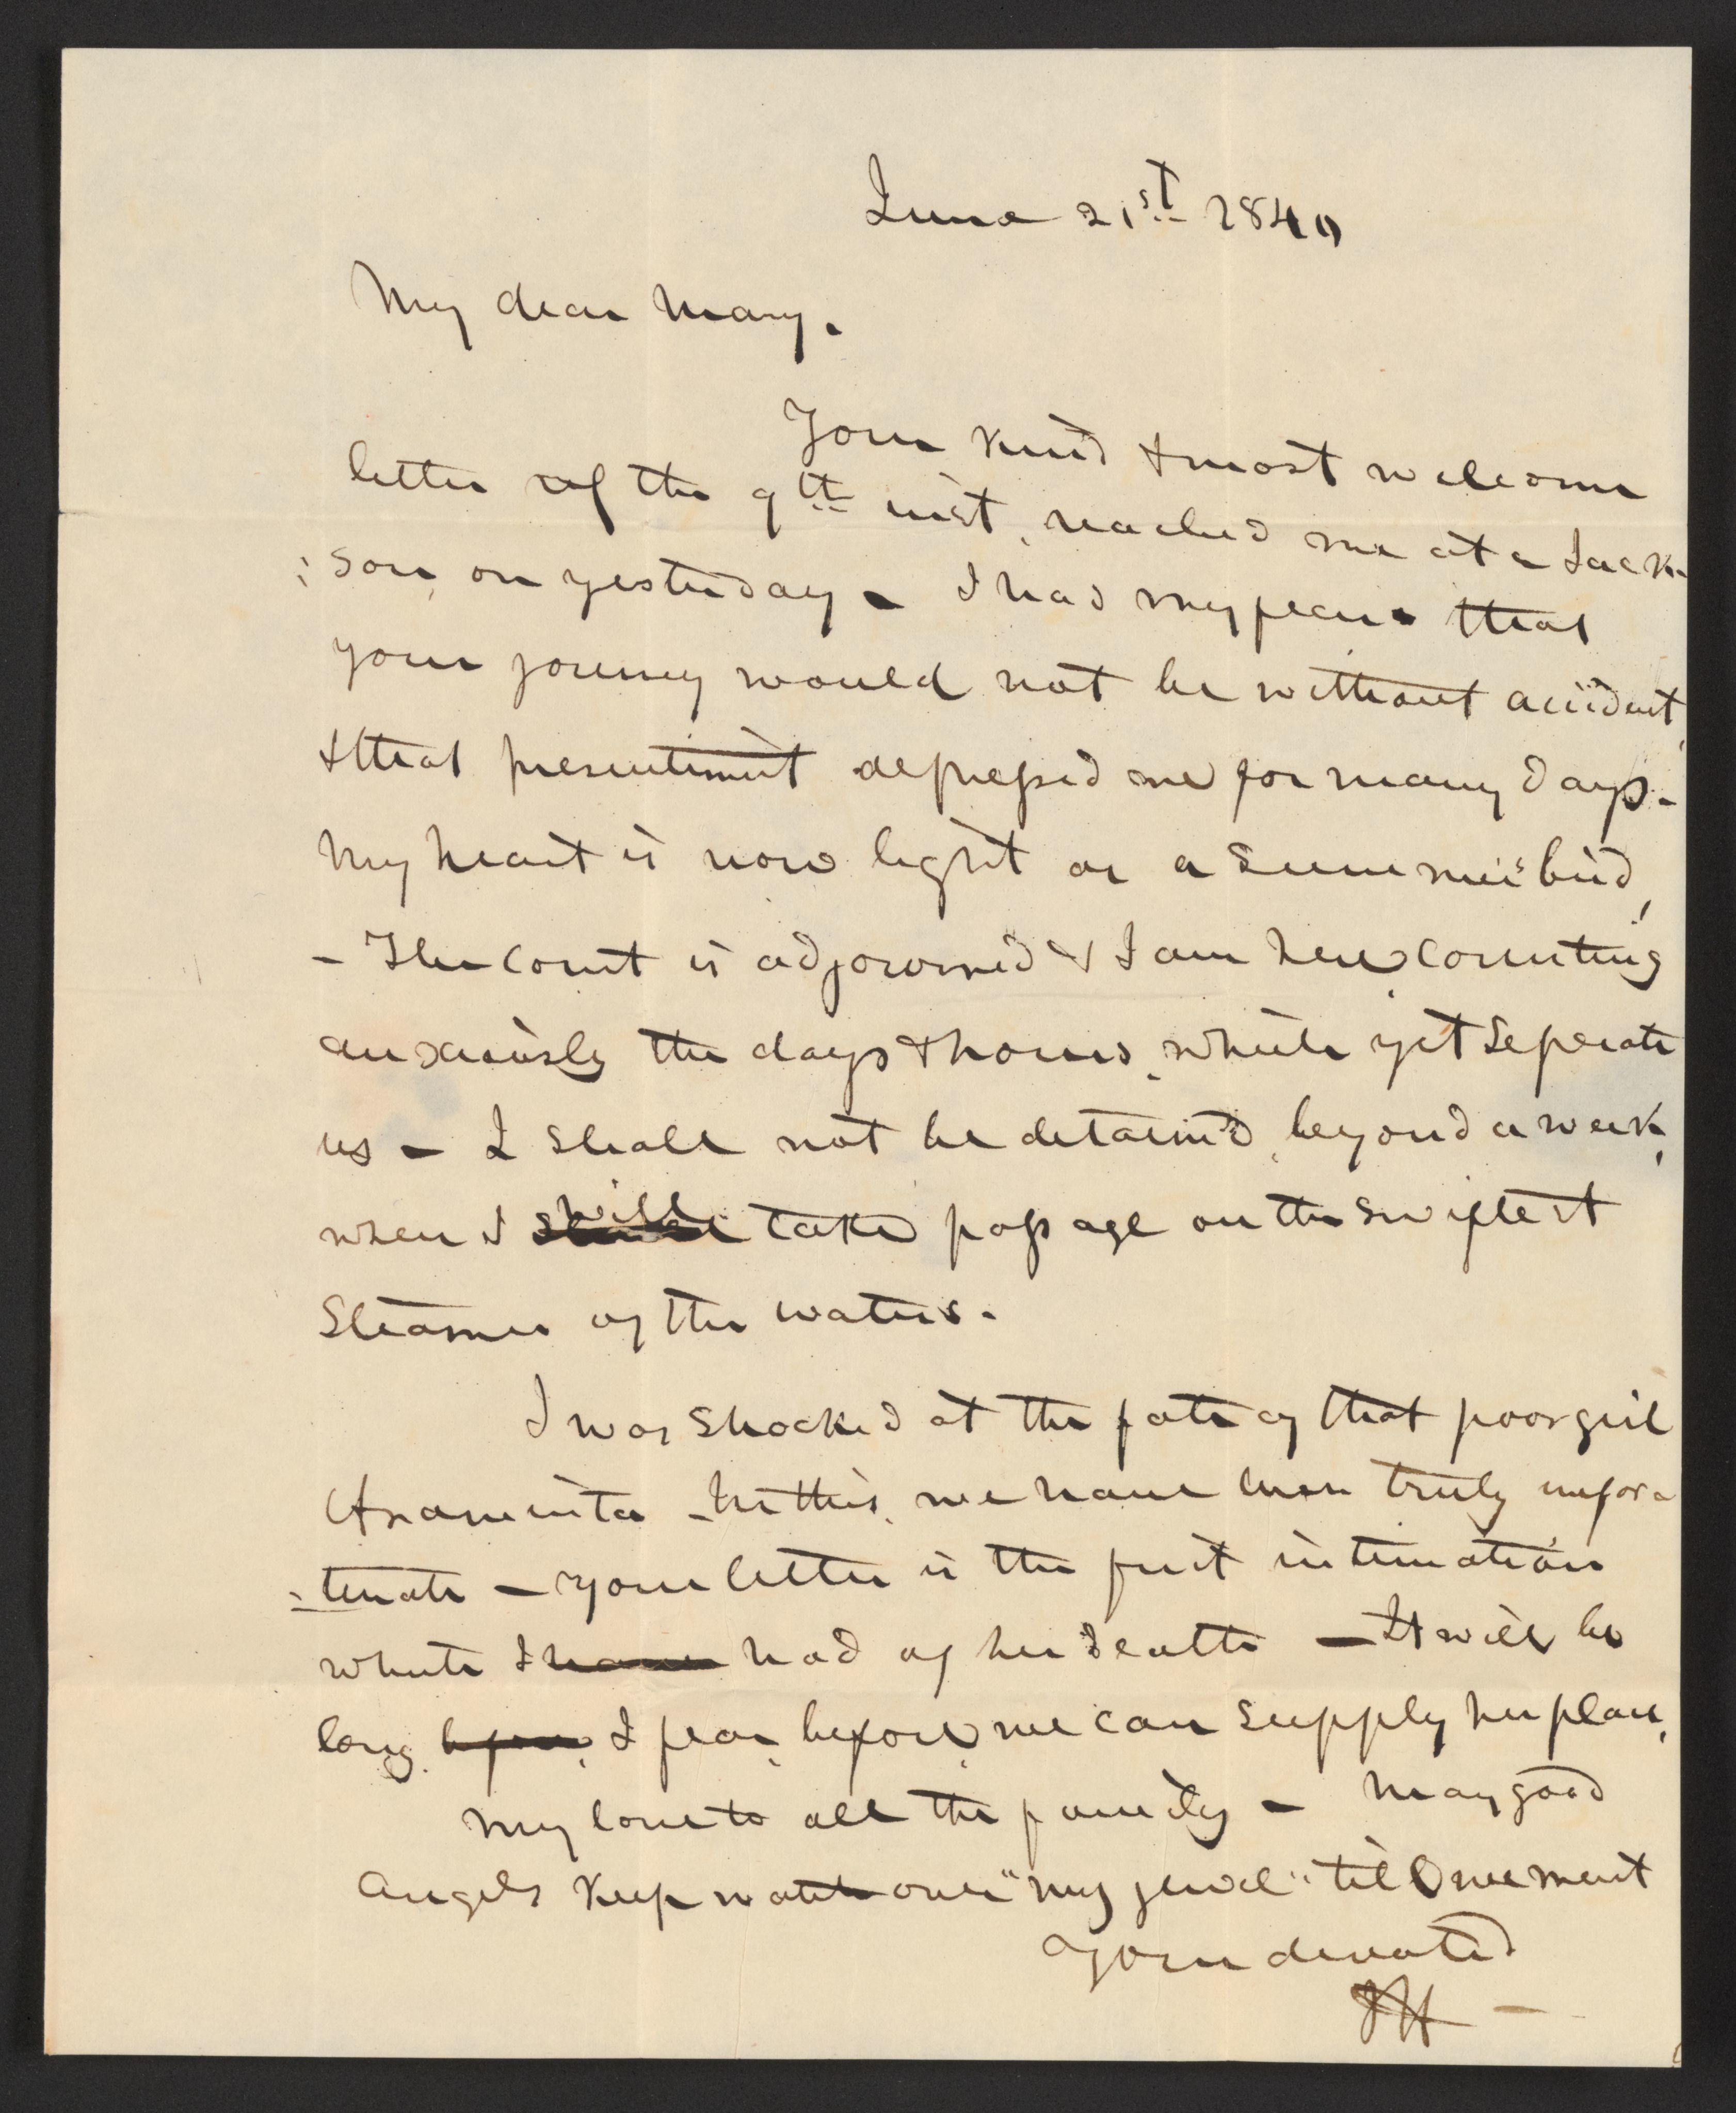 June 21st 1840
My dear Mary.
Your kind & most welcome
letter of the 9th inst, reached me at Jack-
:son, on yesterday - I had my fears that
your journey would not be without accident,
& that presentiment depressed me for many days -
My heart is now light as a summer's bird,
- The Court is adjourned & I am here counting
anxiously the days & hours, which yet seperate
us - I shall not be detained, beyond a week,
when I shall will take passage on the swiftest
Steamer of the waters.
I was shocked at the fate of that poor girl
Araminta - In this, we have been truly unfor-
:tunate - your letter is the first intimation
which I have had of her death - It will be
long, before, I fear, before, we can supply her place,
My love to all the family - May good
angels keep watch over "my jewel" till we meet
Your devoted
JH -